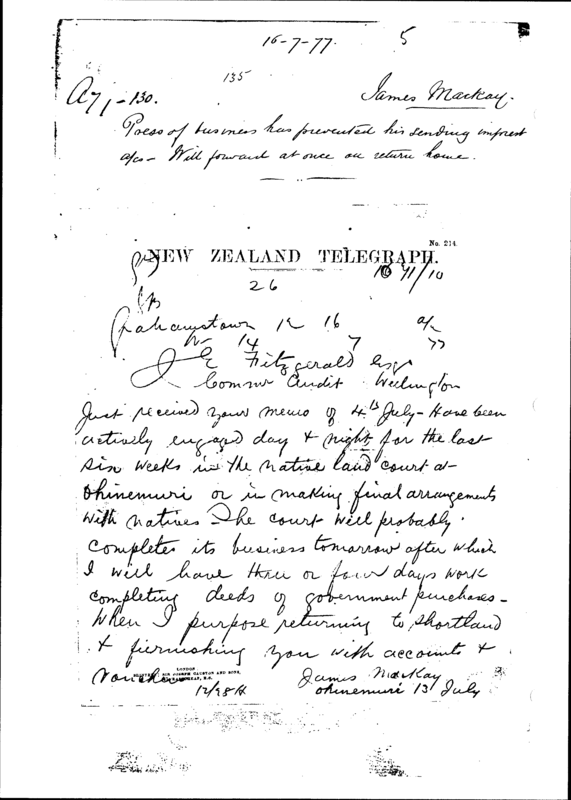 16-7-77. 5
135
A71-130. James Mackay.
Press of business has prevented his sending imprest
a/cs - Will forward at once on return home.
No. 214.
NEW ZEALAND TELEGRAPH.
26 71/10
Grahamstown 16
14 7 77
J E Fitzgerald Esqr
Commr Audit Wellington
Just received your memo of 4th July - Have been
actively engaged day & night for the last
six weeks in the native land court at
Ohinemuri or in making final arrangements
with natives - The court will probably
complete its business tomorrow after which
I will have three or four days work
completing deeds of government purchases -
When I purpose returning to Shortland
& furnishing you with accounts &
Vouchers
LONDON
James MacKay
Ohinemuri 13 July